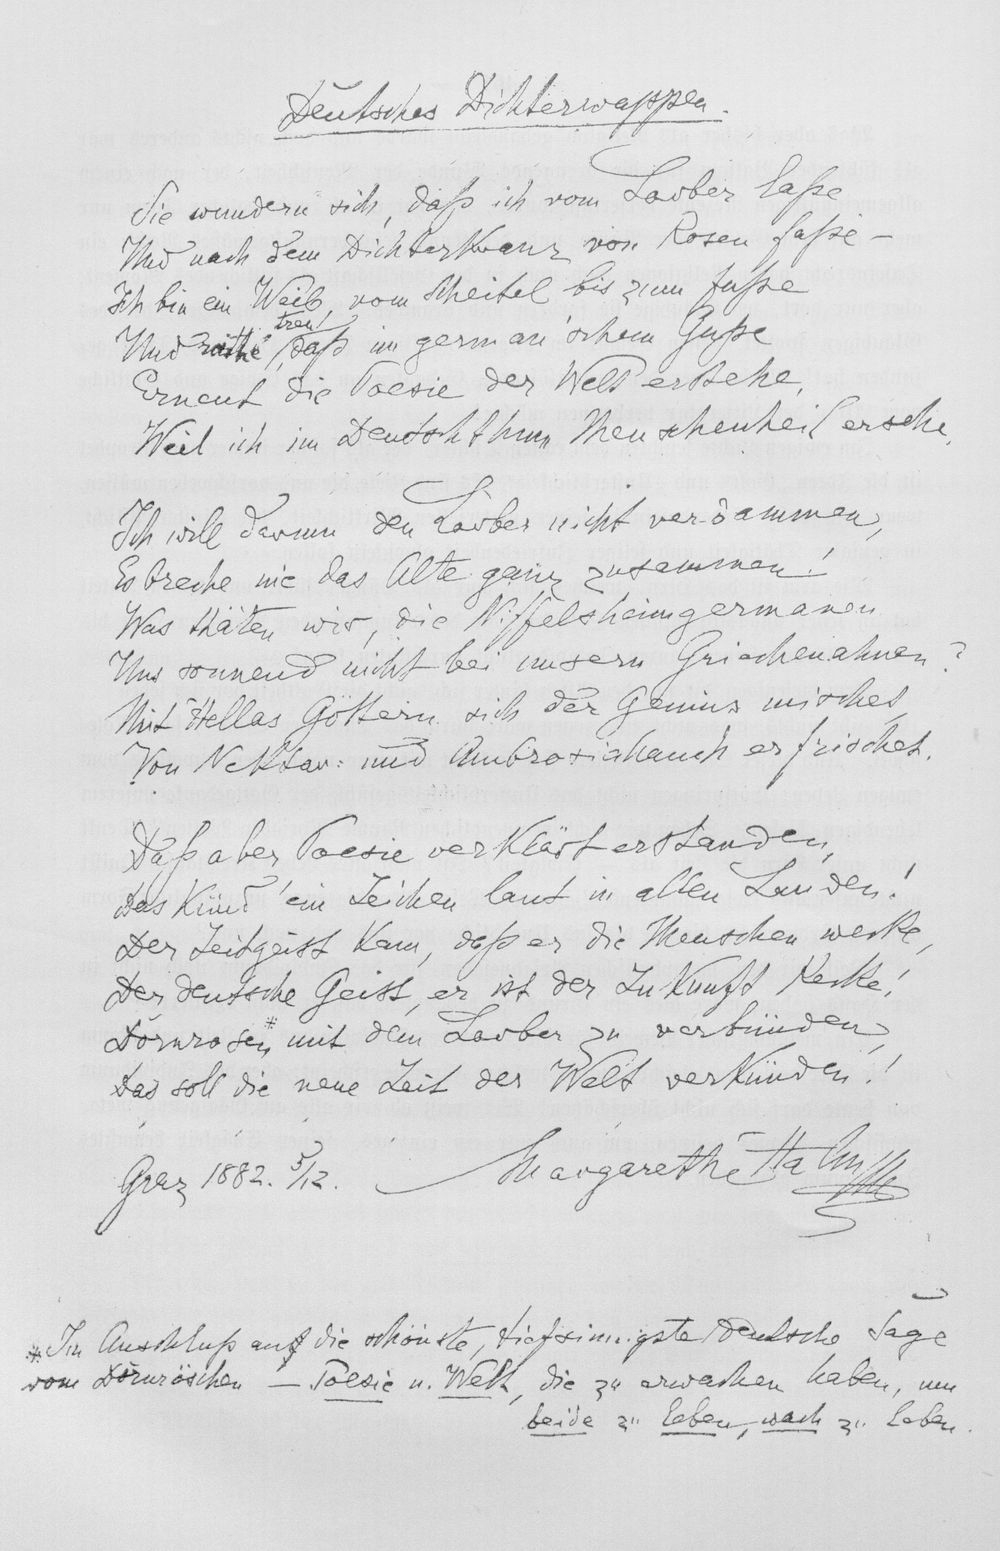 Deutsches Dichterwappen.
Sie wundern sich, daß ich vom Lorber laße
Und nach dem Dichterkranz von Rosen faße –
Ich bin ein Weib, vom Scheitel bis zum Fuße
treu
Und rathe, daß im german'schem Guße
Erneut die Poesie der Welt erstehe,
Weil ich im Deutschthum Menschenheil ersehe.
Ich will darum den Lorber nicht verdammen,
Es breche nie das Alte ganz zusammen!
Was thäten wir, die Niffelsheimgermanen
Uns sonnend nicht bei unsern Griechenahnen?
Mit Hellas Göttern sich der Genius mischet,
Von Nektar- und Ambrosiahauch erfrischet.
Daß aber Poesie verklärt erstanden,
Das künd' ein Zeichen laut in allen Landen!
Der Zeitgeist kam, daß er die Menschen wecke,
Der deutsche Geist, er ist der Zukunft Recke!
Dornrosen* mit dem Lorber zu verbünden,
Das soll die neue Zeit der Welt verkünden!
Graz 1882. 5/12. Margarethe Halm
* Im Anschluß auf die schönste, tiefsinnigste deutsche Sage
vom Dornröschen – Poesie u. Welt, die zu erwachen haben, um
beide zu leben, wach zu leben.